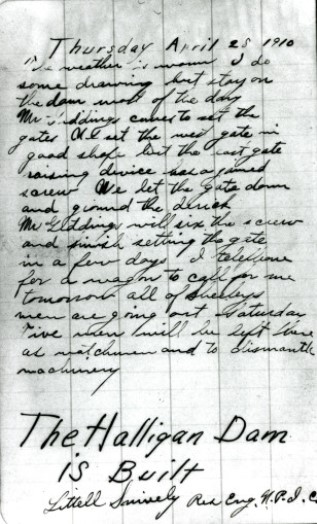 Thursday April 28 1910
The weather is warm I do
some drawing but stay on
the dam most of the day
Mr Giddings comes to set the
gates We set the west gate in
good shape but the east gate
raising device has a jamed
screw We let the gate down
and ground the
Mr Giddings will fix the screw
and finish setting the gate
in a few days I telephone
for a wagon to call for me
tomorrow all of
men are going out Saturday
Five men will be left here
as watchmen and to dismantle
machinery
The Halligan Dam
is Built
Littell Snively Res Eng. N.P.I.C